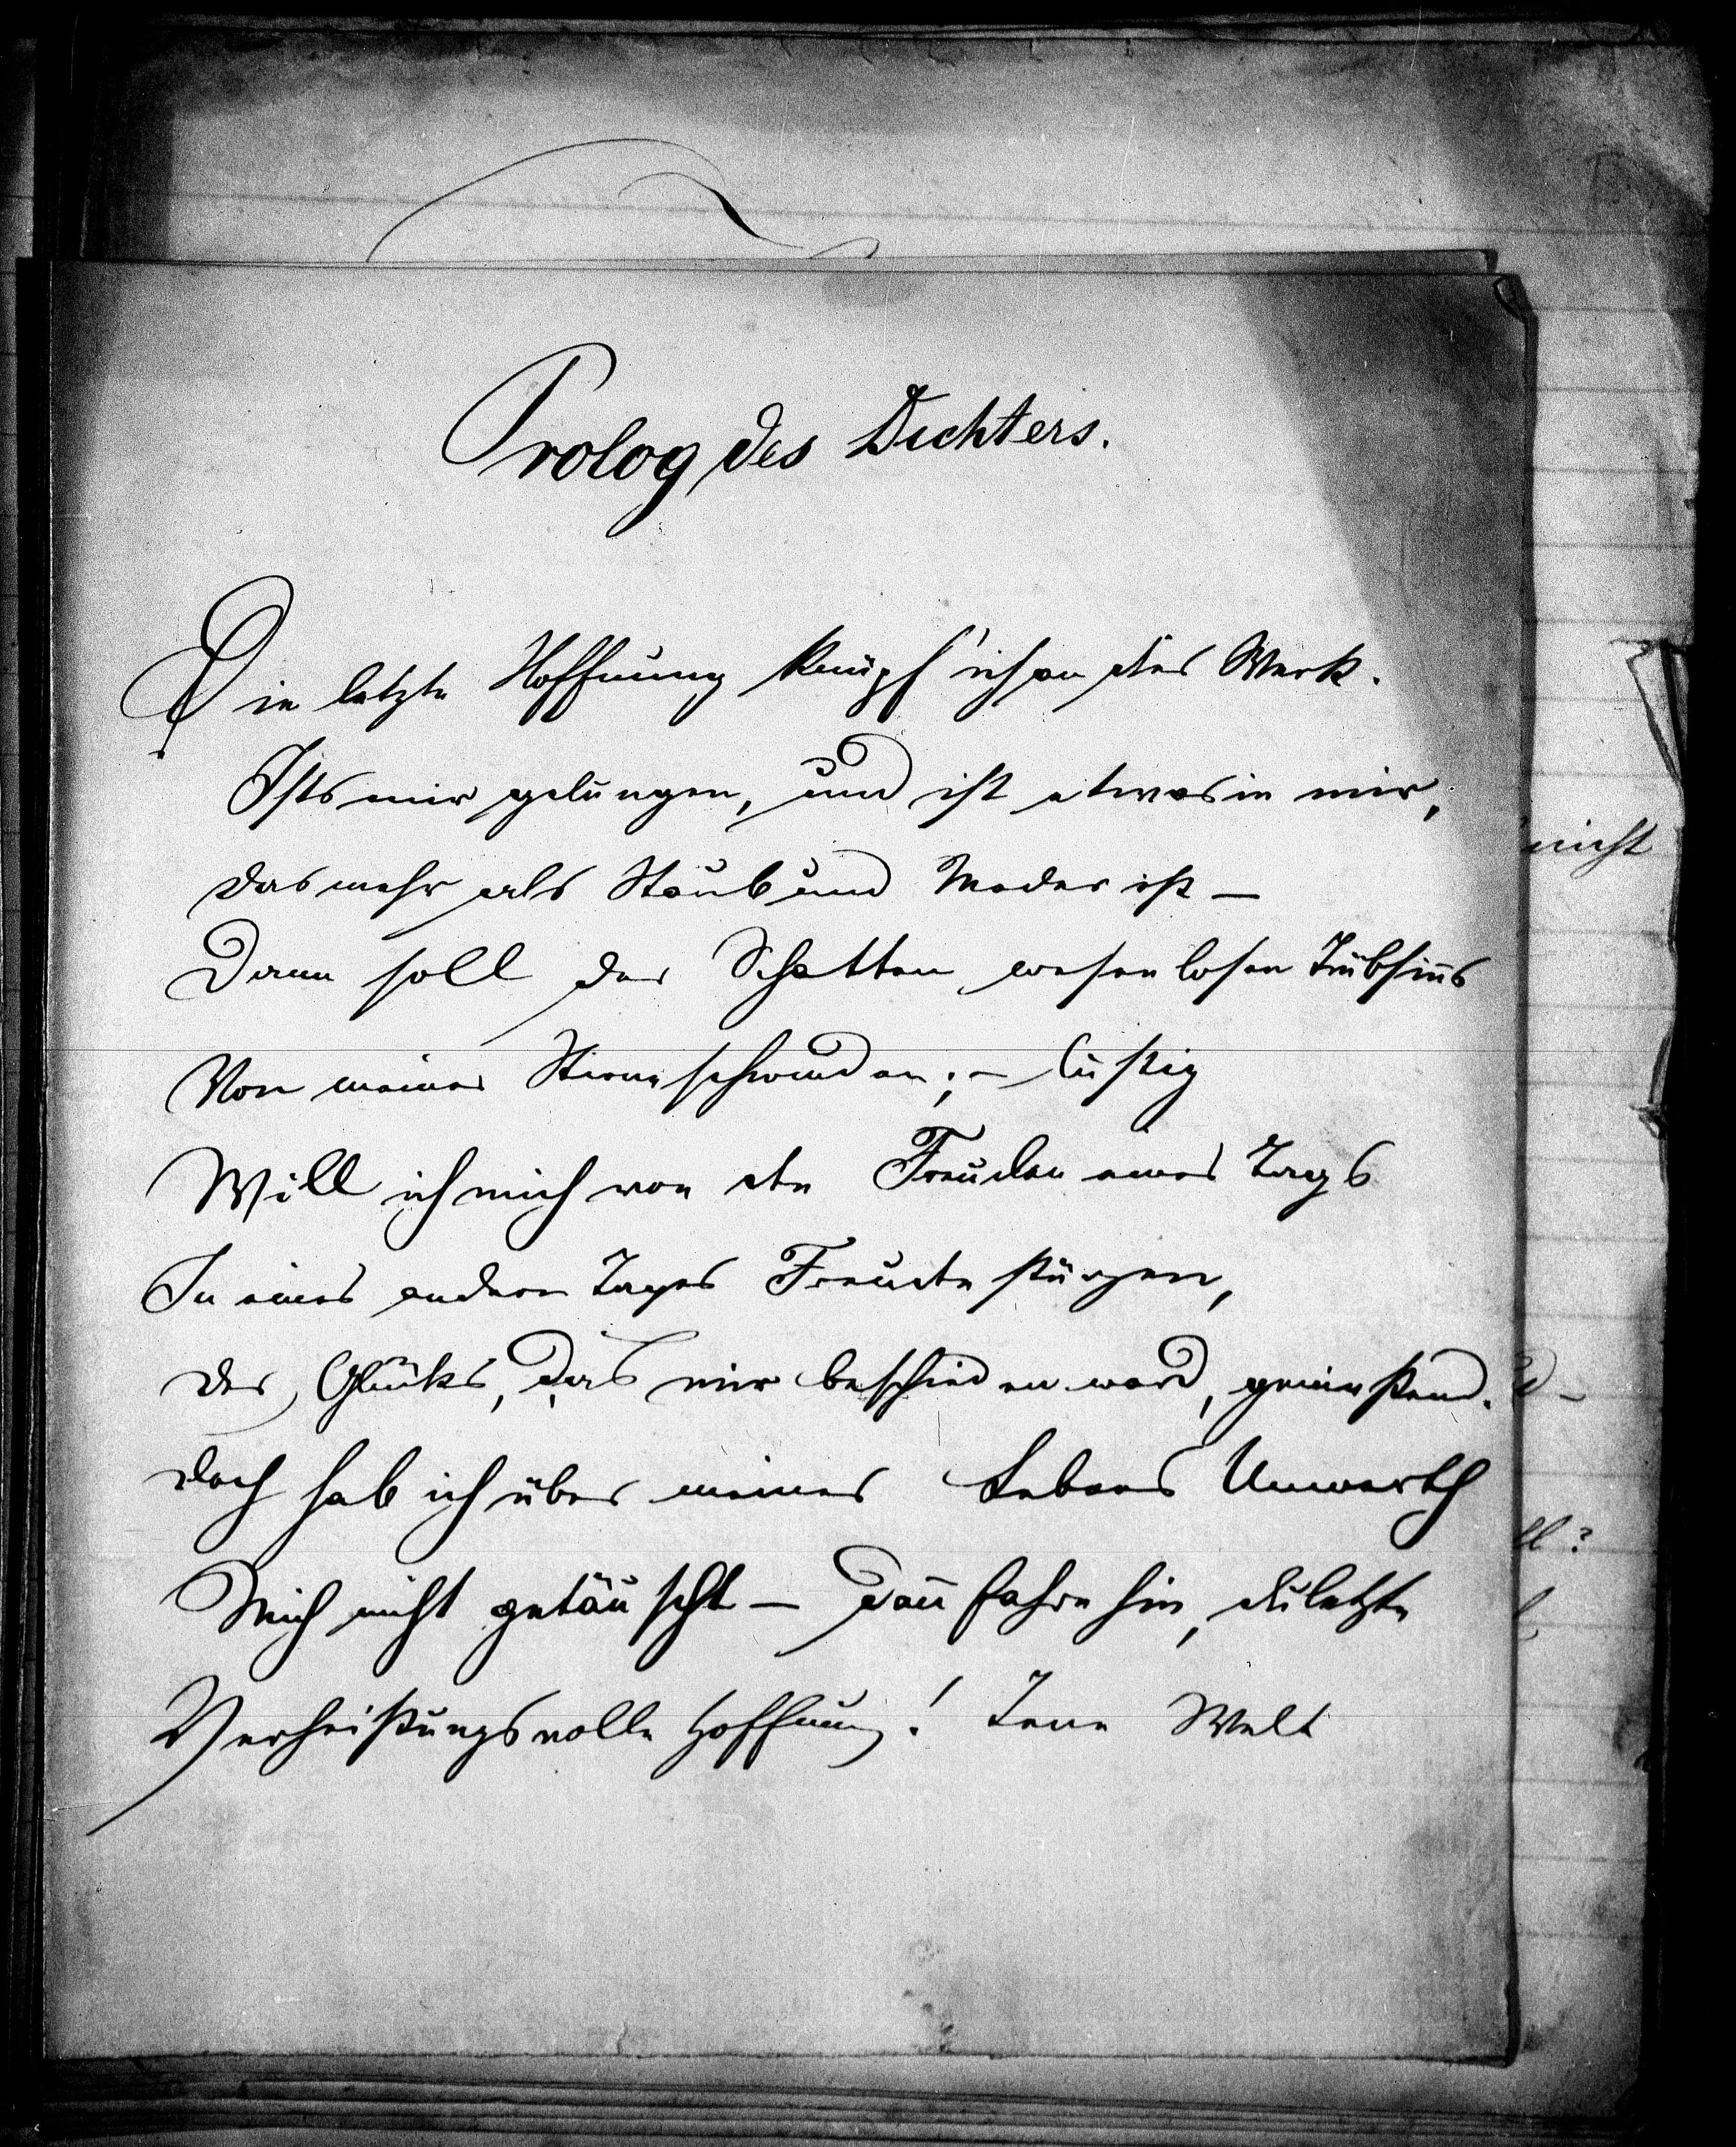 Prolog des Dichters.
Die letzte Hoffnung knüpf' ich an dies Werk.
Ists mir gelungen, und ist etwas in mir,
das mehr als Staub und Moder ist –
Dann soll der Schatten wesenlosen Trübsin̄s
Von meiner Stirne schwinden; – lustig
Will ich mich von der Freuden eines Tags
In eines andern Tages Freude stürzen,
des Glücks, das mir beschieden ward, genießend.
doch hab ich über meines Lebens Unwerth
Mich nicht getäuscht – dan̄ fahre hin, du letzte
Verheißungsvolle Hoffnung! Jene Welt
nicht